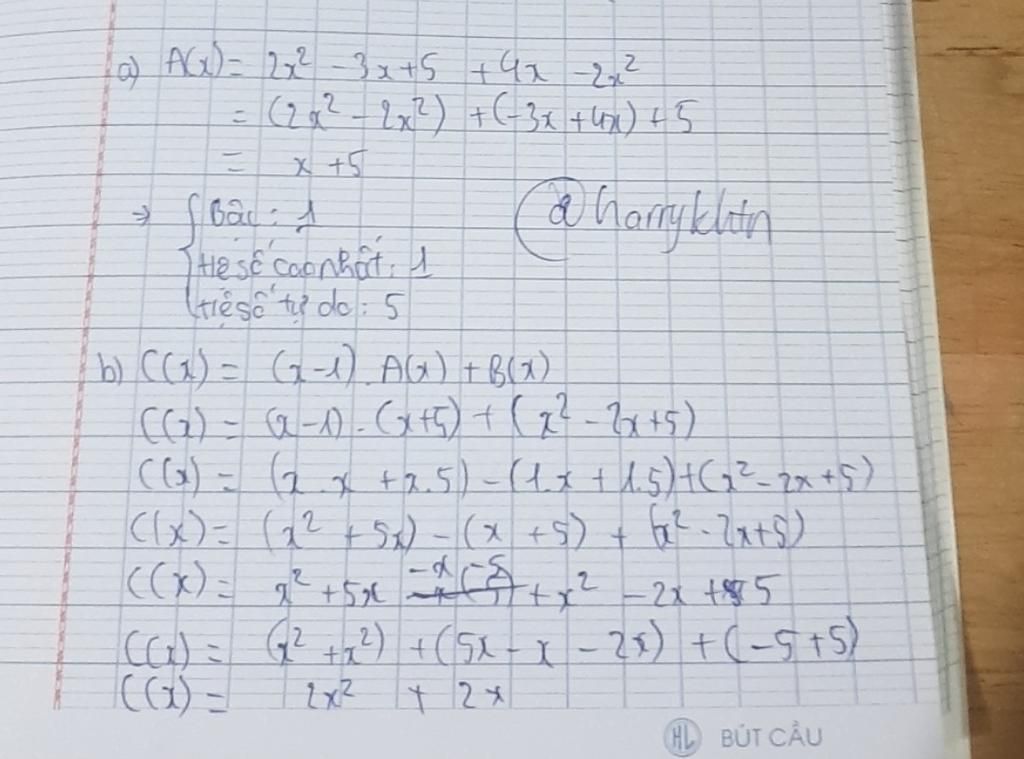 a) A(x) = 2x² - 3x + 5 + 4x - 2x²
= (2x² - 2x²) + (-3x + 4x) + 5
= x + 5
⇒ { Bậc: 1
@harrykhtn
Hệ số cao nhất: 1
Hệ số tự do: 5
b) C(x) = (x-1). A(x) + B(x)
C(x) = (x-1). (x+5) + (x² - 2x + 5)
C(x) = (x.x + x.5) - (1.x + 1.5) + (x² - 2x + 5)
C(x) = (x² + 5x) - (x + 5) + (x² - 2x + 5)
C(x) = x² + 5x - x - 5 + x² - 2x + 5
C(x) = (x² + x²) + (5x - x - 2x) + (-5 + 5)
C(x) = 2x² + 2x
HL BÚT CẦU